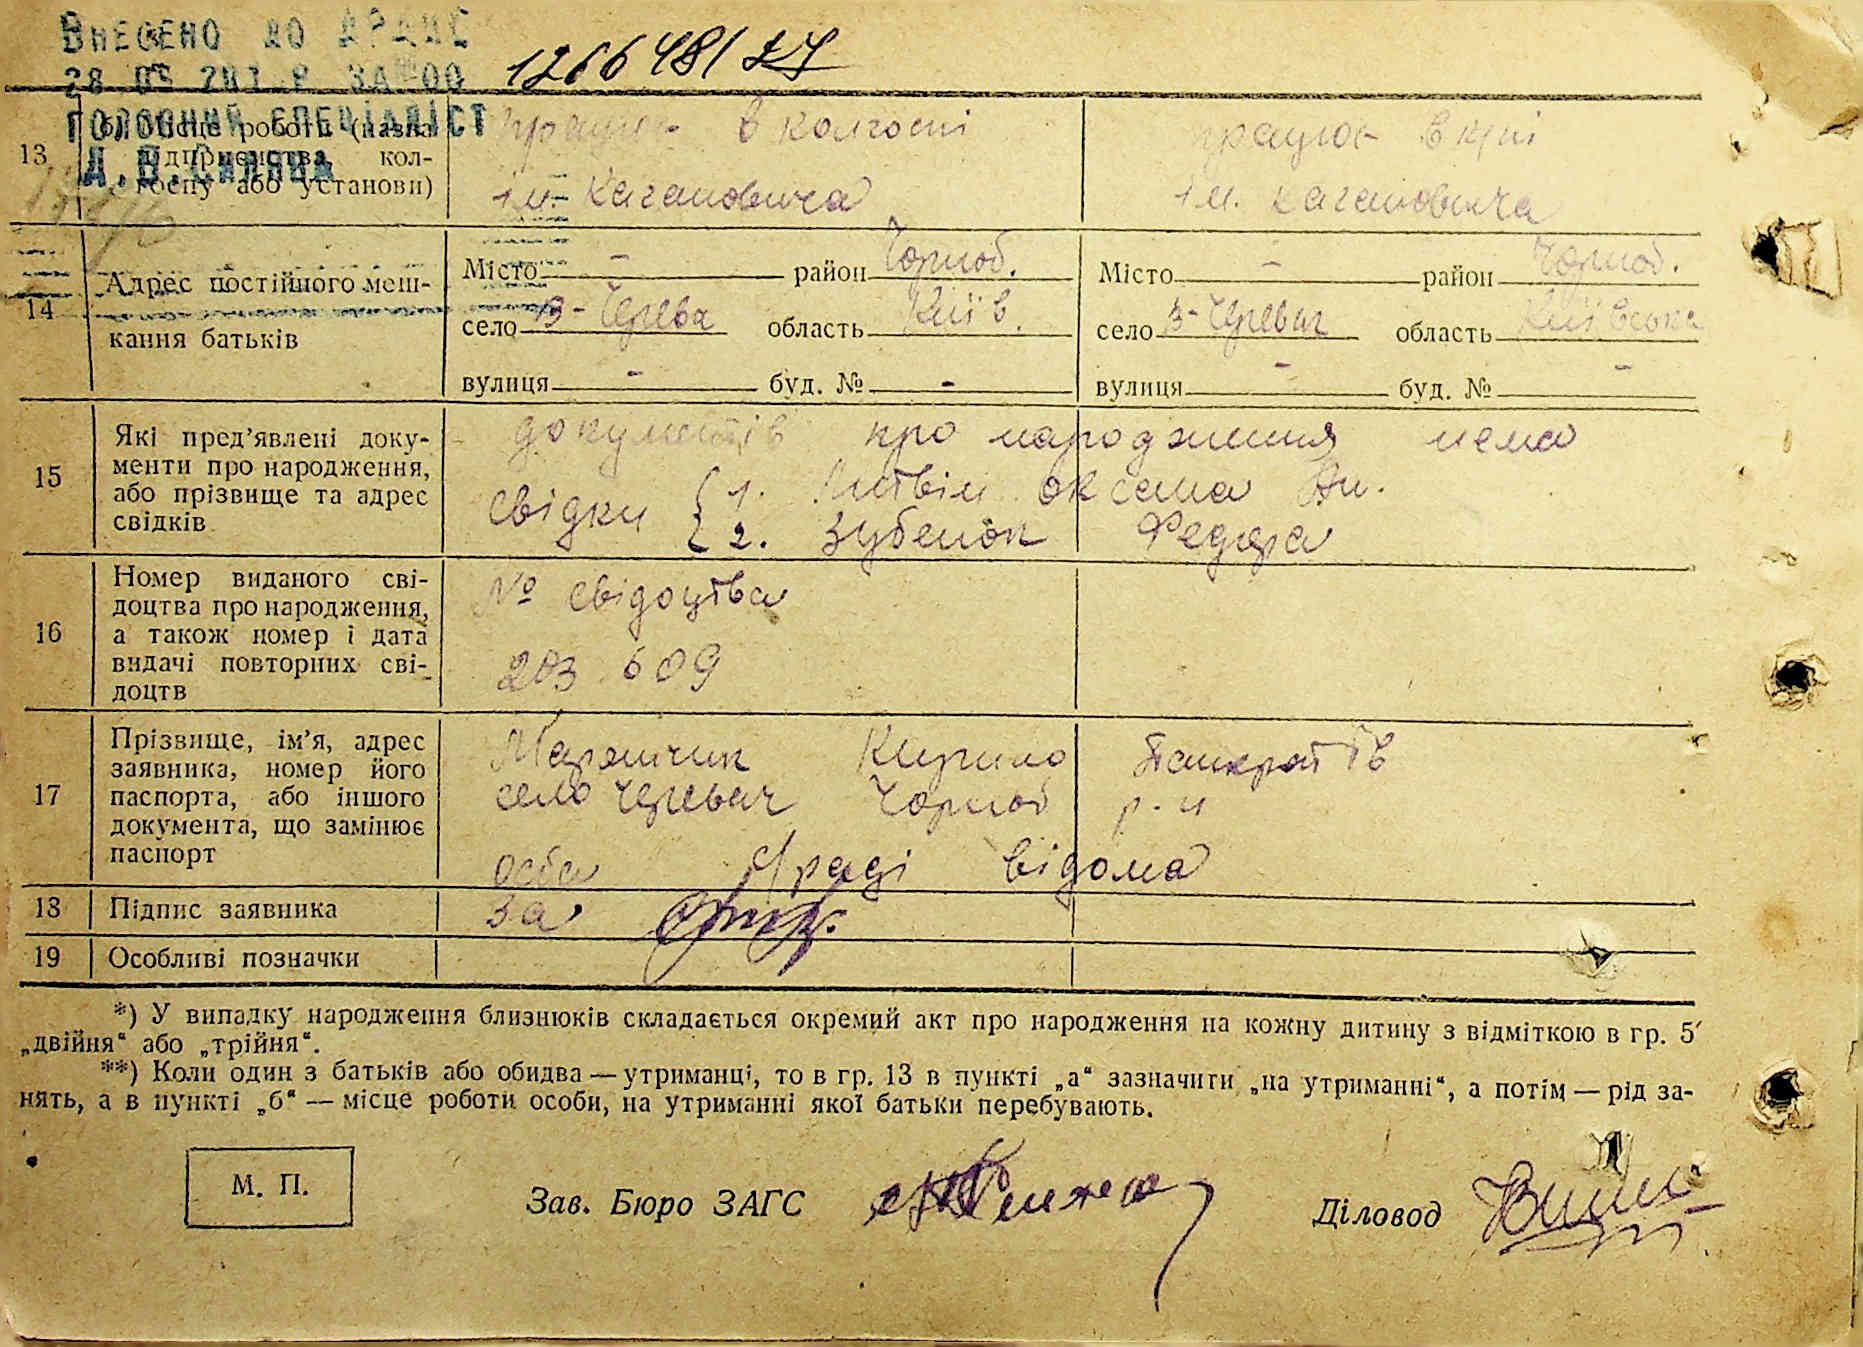 Внесено до
1266481
13
б) Місце роботи (назва
підприємства, кол-
госпу або установи)
Головний спеціаліст
працює в колгоспі
ім. Кагановича
працює в к/рі
ім. Кагановича
14
Адрес постійного меш-
кання батьків
Місто - район Чорноб.
село З-Черева область Київ.
вулиця - буд. № -
Місто - район Чорноб.
село З-Черевач область Київська
вулиця - буд. № -
15
Які пред'явлені доку-
менти про народження,
або прізвище та адрес
свідків
документів про народження нема
свідки { 1. Литвін Оксана Ан.
2. Зубенок Федора
16
Номер виданого сві-
доцтва про народження,
а також номер і дата
видачі повторних сві-
доцтв
№ свідоцтва
203 609
17
Прізвище, ім'я, адрес
заявника, номер його
паспорта, або іншого
документа, що замінює
паспорт
Кирило Панкратів
село Черевач Чорноб р-н
особа с/раді відома
18
Підпис заявника
за
19
Особливі позначки
*) У випадку народження близнюків складається окремий акт про народження на кожну дитину з відміткою в гр. 5
„двійня“ або „трійня“.
**) Коли один з батьків або обидва — утриманці, то в гр. 13 в пункті „а“ зазначити „на утриманні“, а потім — рід за-
нять, а в пункті „б“ — місце роботи особи, на утриманні якої батьки перебувають.
М. П.
Зав. Бюро ЗАГС
Діловод